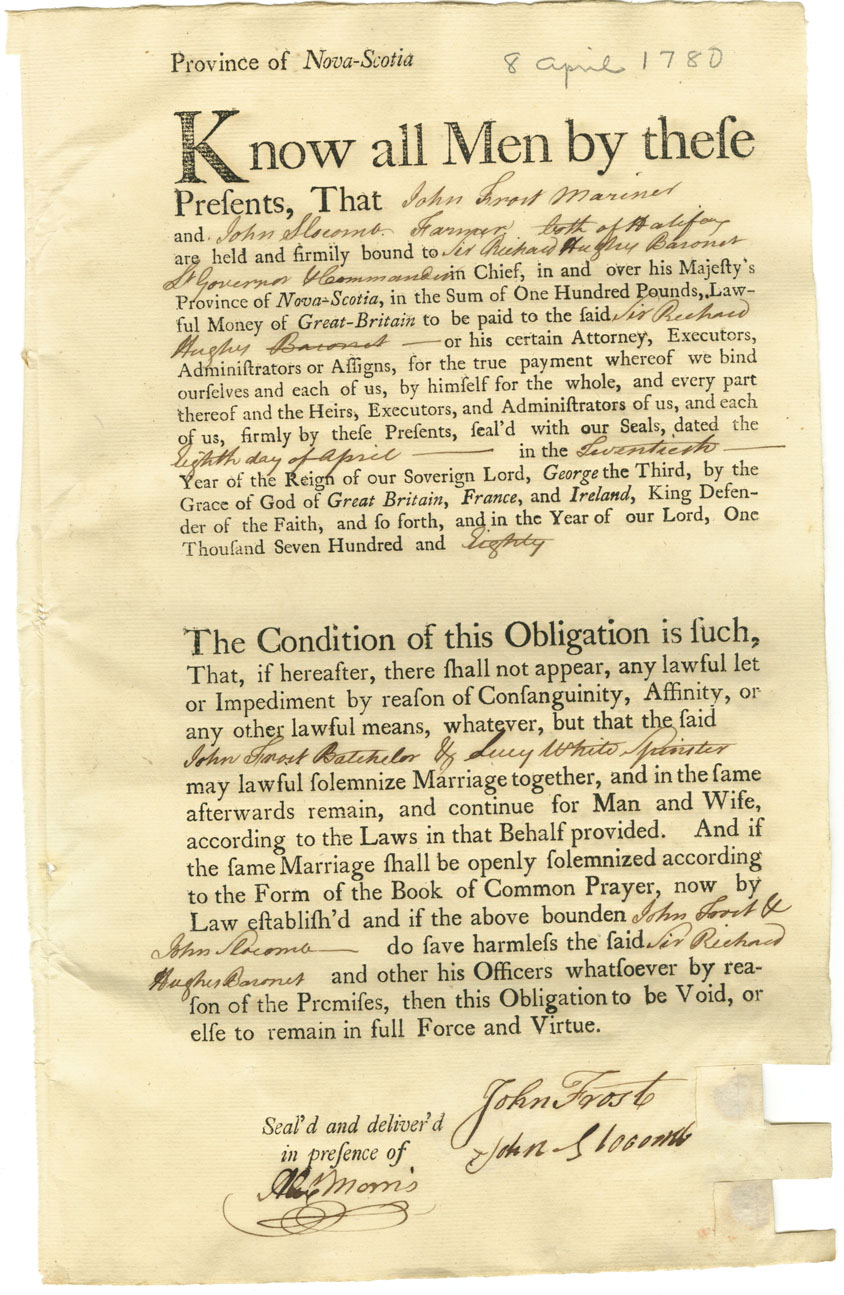 Province of Nova-Scotia 8 april 1780
Know all Men by theſe
Preſents, That John Frost Mariner
and John Slocomb Farmer both of Halifax
are held and firmily bound to Sir Richard Hughes Baronet
Lt Governor & Commander in Chief, in and over his Majeſty's
Province of Nova-Scotia, in the Sum of One Hundred Pounds, Law-
ful Money of Great-Britain to be paid to the ſaid Sir Richard
Hughes Baronet — or his certain Attorney, Executors,
Adminiſtrators or Aſſigns, for the true payment whereof we bind
ourſelves and each of us, by himſelf for the whole, and every part
thereof and the Heirs, Executors, and Adminiſtrators of us, and each
of us, firmly by theſe Preſents, ſeal'd with our Seals, dated the
Eighth day of April — in the Twentieth —
Year of the Reign of our Soverign Lord, George the Third, by the
Grace of God of Great Britain, France, and Ireland, King Defen-
der of the Faith, and ſo forth, and in the Year of our Lord, One
Thouſand Seven Hundred and Eighty
The Condition of this Obligation is ſuch,
That, if hereafter, there ſhall not appear, any lawful let
or Impediment by reaſon of Conſanguinity, Affinity, or
any other lawful means, whatever, but that the ſaid
John Frost Batchelor & Lucy White Spinster
may lawful ſolemnize Marriage together, and in the ſame
afterwards remain, and continue for Man and Wife,
according to the Laws in that Behalf provided. And if
the ſame Marriage ſhall be openly ſolemnized according
to the Form of the Book of Common Prayer, now by
Law eſtabliſh'd and if the above bounden John Frost &
John Slocomb — do ſave harmleſs the ſaid Sir Richard
Hughes Baronet and other his Officers whatſoever by rea-
ſon of the Premiſes, then this Obligation to be Void, or
elſe to remain in full Force and Virtue.
John Frost
Seal'd and deliver'd
in preſence of
John Slocomb
Morris